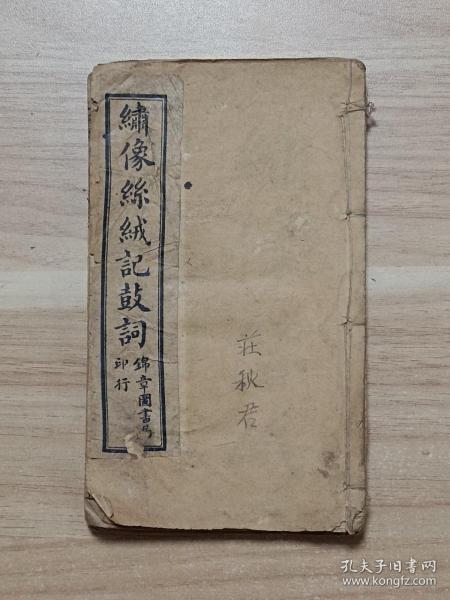 繡像絲絨記鼓詞
錦章圖書局
印行
莊秋君
孔夫子旧书网
www.kongfz.com